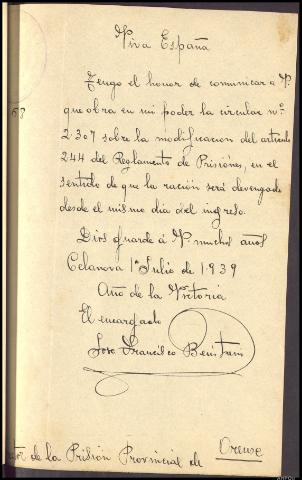 Viva España
Tengo el honor de comunicar a V.
que obra en mi poder la circular nº
2.307 sobre la modificacion del articulo
244 del Reglamento de Prisiones, en el
sentido de que la ración será devengada
desde el mismo dia del ingreso.
Dios guarde á V. muchos años
Celanova 1º Julio de 1.939
Año de la Vitoria
El encargado
José Francisco
de la Prisión Provincial de Orense